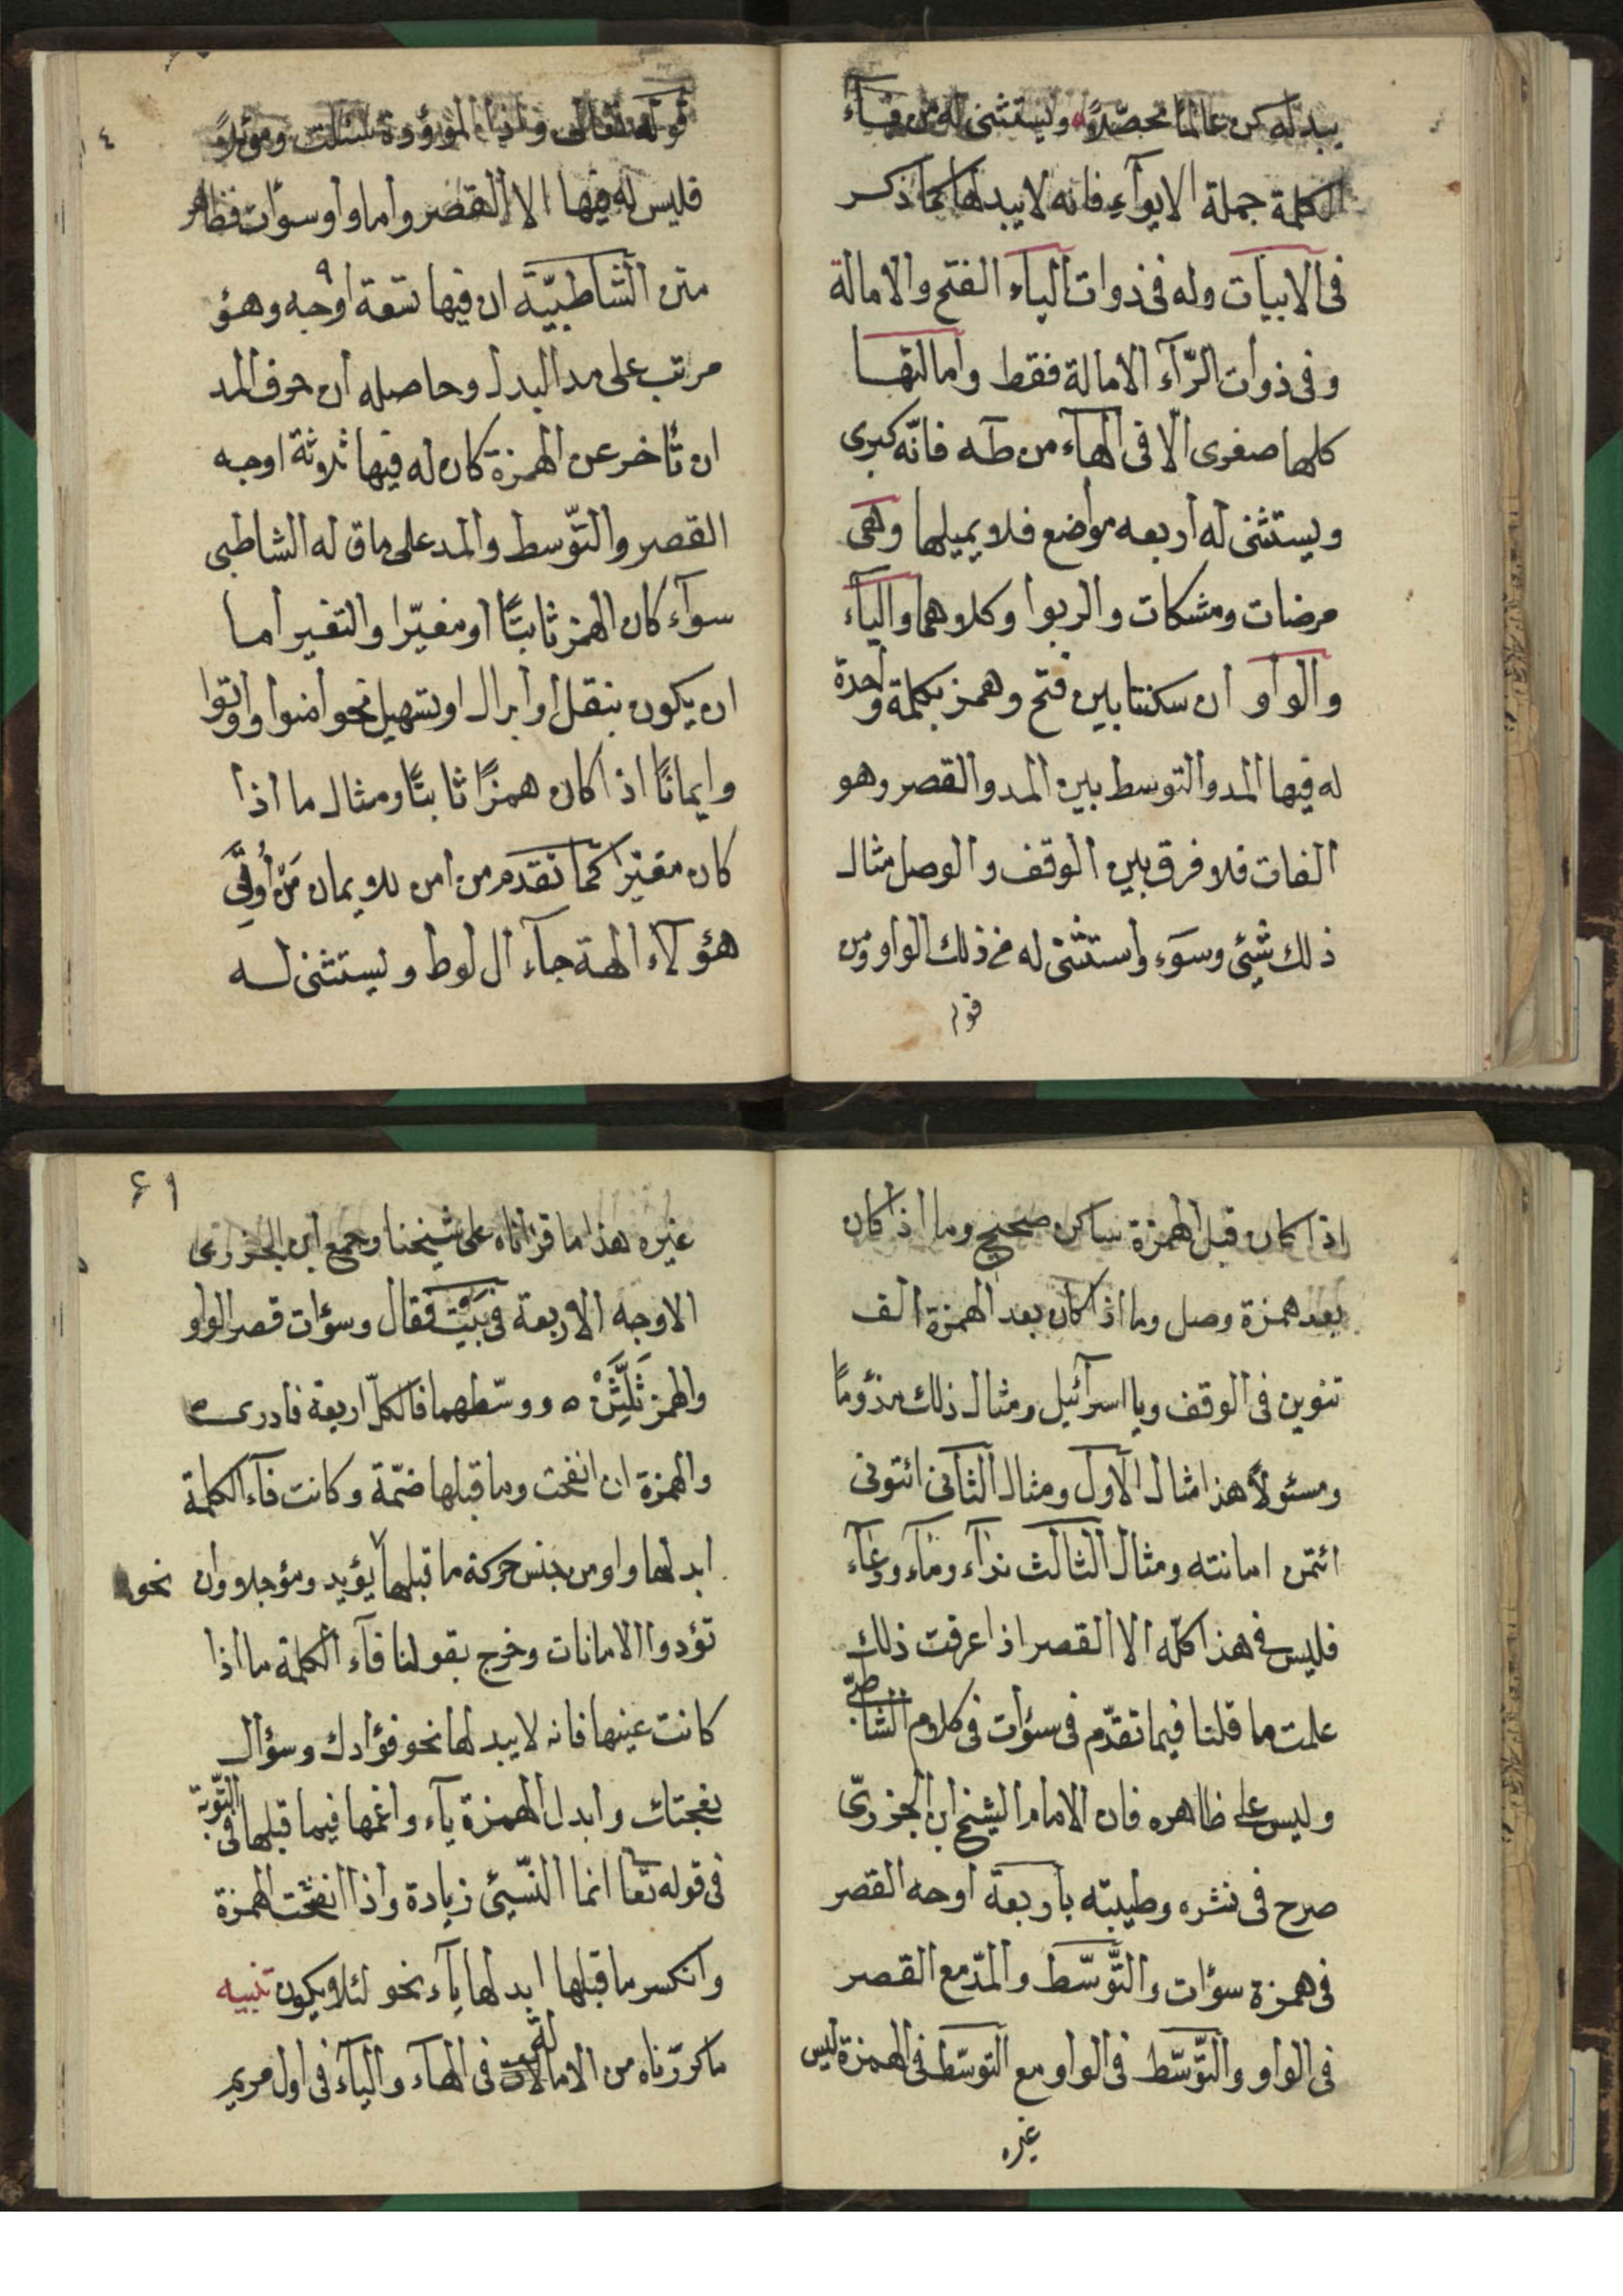 يبدله كن عالما محصّلا ويستثنى له من فآء
الكلمة جملة الايوآء فانه لا يبدلها كما ذكر
فى الابيات وله فى ذوات اليآء الفتح والامالة
وفى ذوات الرّآء الامالة فقط وامالتها
كلها صغرى الّا فى الهآء من طه فانّه كبرى
ويستثنى له اربعه مواضع فلا يميلها وهى
مرضات ومشكات والربوا وكلاهما واليآء
والواو ان سكنتا بين فتح وهمز بكلمة واحدة
له فيها المد والتوسط بين المد والقصر وهو
الفات فلا فرق بين الوقف والوصل مثال
ذلك شيئ وسوء واستثنى له من ذلك الواو من
قوله
١٤
قوله تعالى واذا الموؤودة سئلت وموئلاً
فليس له فيها الا القصر واما واو سوآت فظاهر
متن الشاطبيّة ان فيها تسعة ٩ اوجه وهؤ
مرتب على مد البدل وحاصله ان حرف المد
ان تأخر عن الهمزة كان له فيها ثلاثة اوجه
القصر والتّوسط والمد على ما قاله الشاطبى
سوآء كان الهمز ثابتًا او مغيّرا والتغير اما
ان يكون بنقل او ابدال او تسهيل نحو امنوا واوتوا
وايمانًا اذا كان همزًا ثابتًا ومثال ما اذا
كان مغيّرا كما تقدم من امن للايمان مَنْ أُوتِىَ
هؤلآء الهة جآء ال لوط ويستثنى له
اذا كان قبل الهمزة ساكن صحيح وما اذا كان
بعد همزة وصل وما اذا كان بعد الهمزة الف
تنوين فى الوقف ويا اسرآئيل ومثال ذلك مذؤمًا
ومسئولاً هذا مثال الاول ومثال الثانى ائتونى
ائتمن امانته ومثال الثالث ندآء ومآء ودعآء
فليس فى هذا كلّه الا القصر اذا عرفت ذلك
علمت ما قلنا فيما تقدّم فى سوآت فى كلام الشاطبىّ
وليس على ظاهره فان الامام الشيخ ابن الجزرىّ
صرح فى نشره وطيبته باربعة اوجه القصر
فى همزة سوآت والتّوسّط والمدّ مع القصر
فى الواو والتّوسّط فى الواو مع التوسّط فى الهمزة ليس
غيره
٦١
غيره هذا ما قرأناه على شيخنا وجمع ابن الجزرى
الاوجه الاربعة فى بيت فقال وسوآت قصر الواو
والهمز ثَلِّثَنْ ه ووسّطهما فالكلّ اربعة فادرى ه
والهمزة ان انفحت وما قبلها ضمّة وكانت فآء الكلمة
ابدلها واو من جنس حركة ما قبلها يؤيد ومؤجلا وان نحو
تؤدوا الامانات وخرج بقولنا فآء الكلمة ما اذا
كانت عينها فانه لا يبدلها نحو فؤادك وسؤال
نعجتك وابدل الهمزة يآء وادغمها فيما قبلها فى التّوبة
فى قوله تعا انما النّسيئ زيادة واذا انفتحت الهمزة
وانكسر ما قبلها ابدلها يآء نحو لئلا يكون تنبيه
ما كررناه من الامالة فى الهآء واليآء فى اول مريم